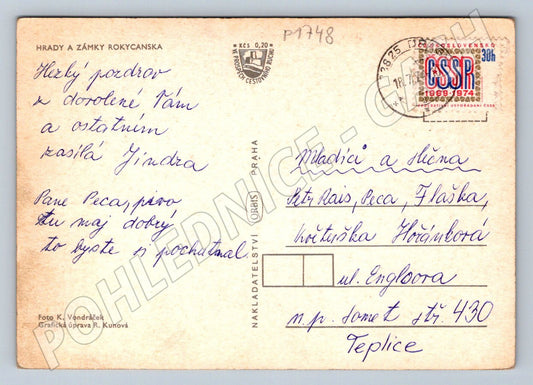 HRADY A ZÁMKY ROKYCANSKA
Hezký pozdrav
z dovolené Vám
a ostatním
zasílá Jindra
Pane Peca, pivo
tu maj dobrý
to byste si pochutnal
Foto K. Vondráček
Grafická úprava R. Kunová
Kčs 0,20
NAKLADATELSTVÍ ORBIS PRAHA
P1748
ČESKOSLOVENSKO
30h
ČSSR
1969-1974
Mladíci a slečna
Petr Rais, Peca, Flaška,
Květuška Hořánková
ul. Englsova
n.p. Somet stř. 430
Teplice
POHLEDNICE